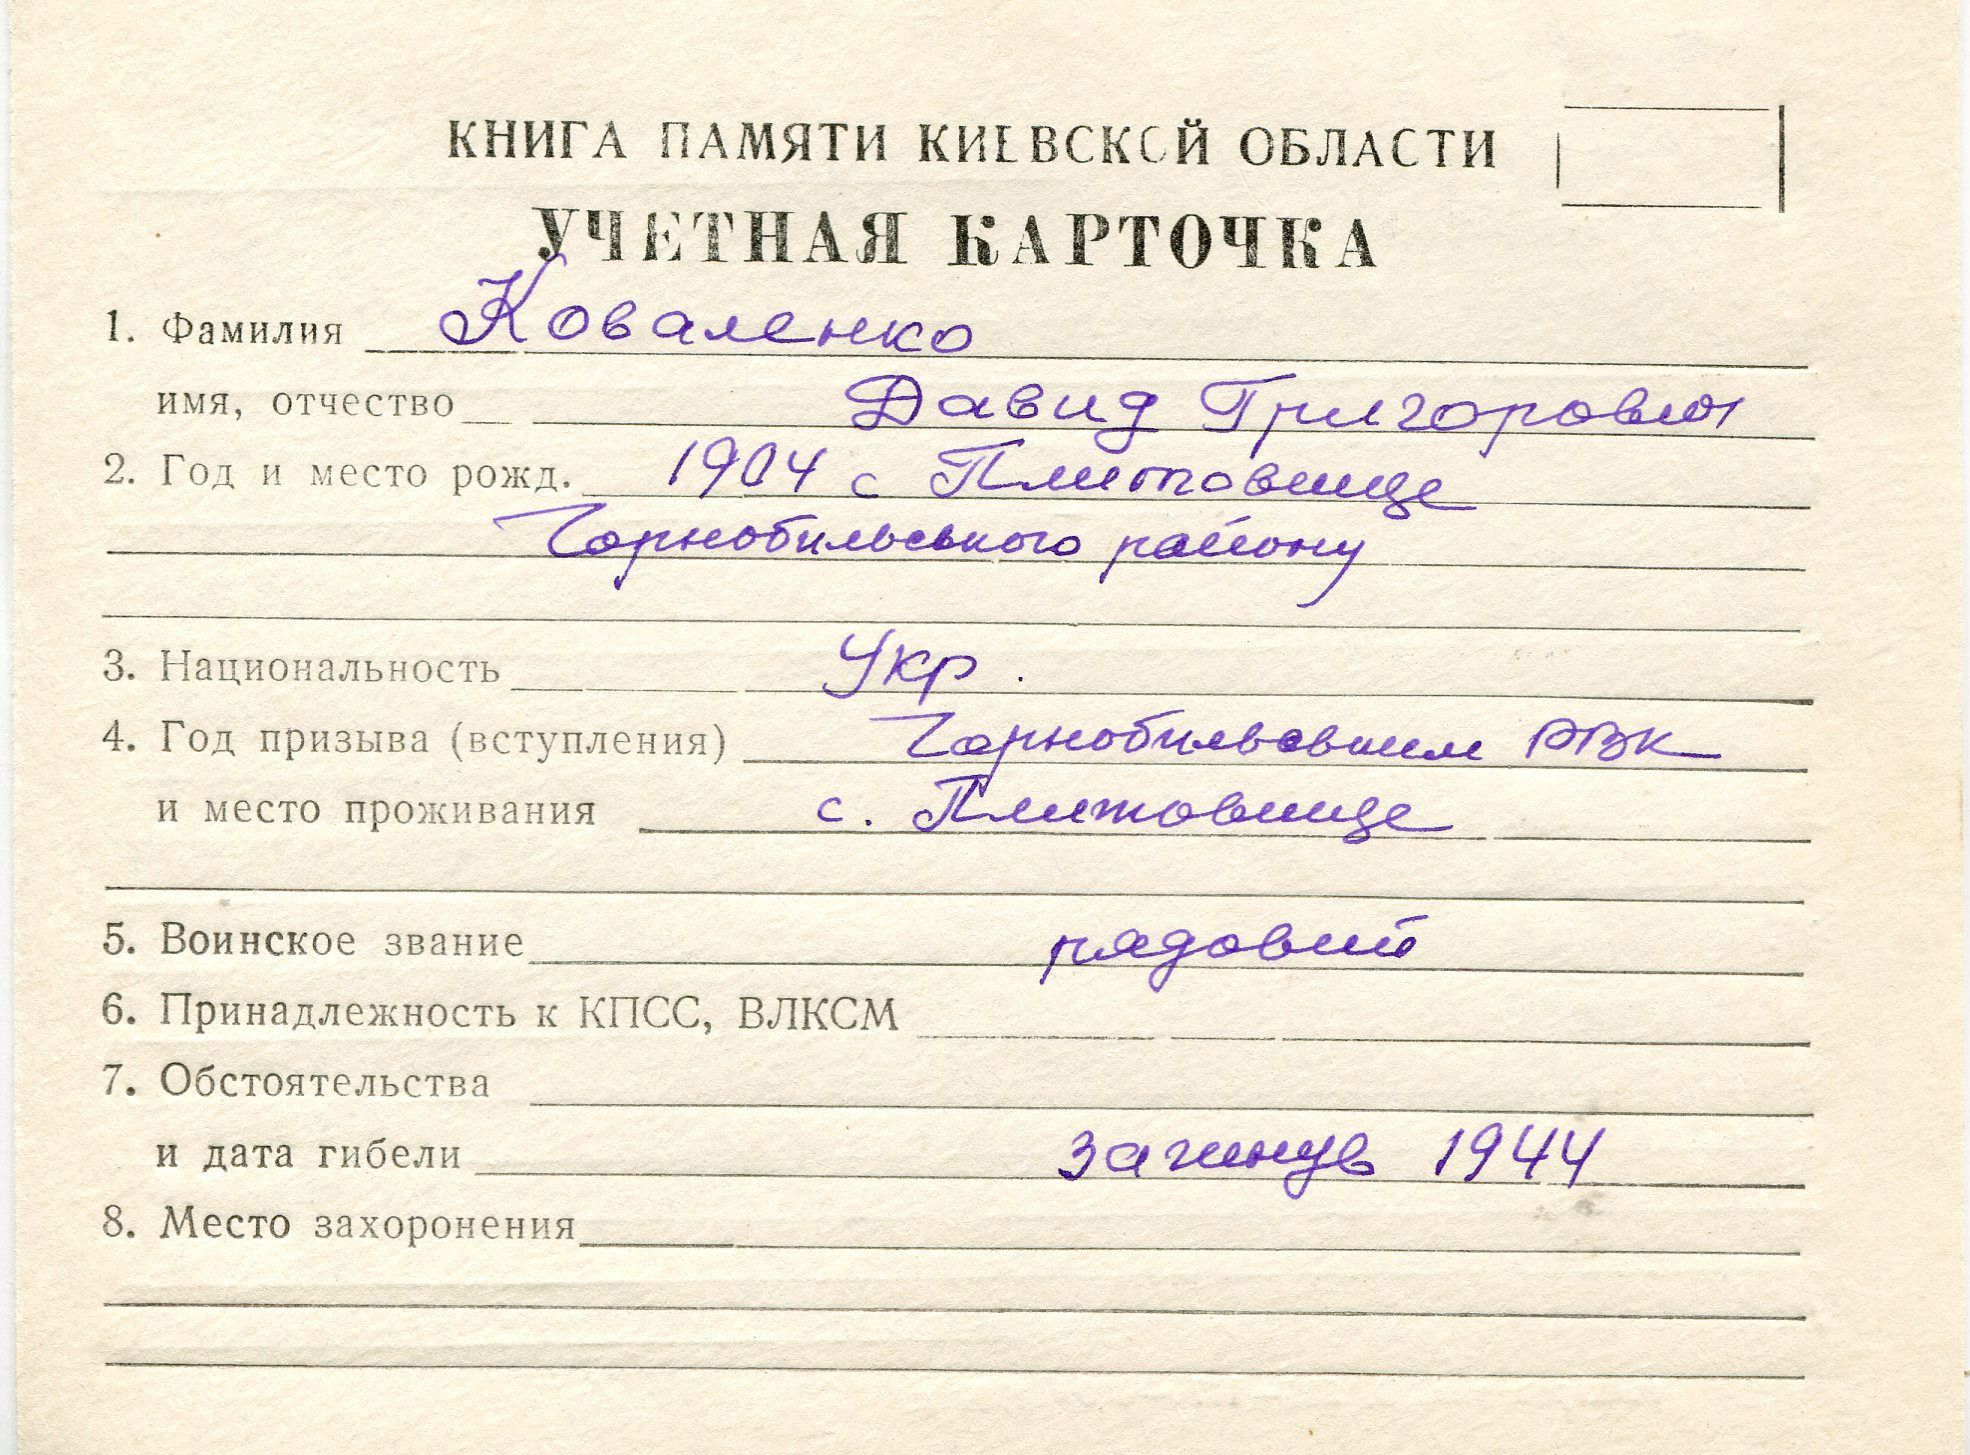 КНИГА ПАМЯТИ КИЕВСКОЙ ОБЛАСТИ
УЧЕТНАЯ КАРТОЧКА
1. Фамилия Коваленко
имя, отчество Давид Григорович
2. Год и место рожд. 1904 с Плитовище
Чорнобильського району
3. Национальность Укр.
4. Год призыва (вступления) Чорнобильським РВК
и место проживания с. Плитовище
5. Воинское звание рядовий
6. Принадлежность к КПСС, ВЛКСМ
7. Обстоятельства
и дата гибели загинув 1944
8. Место захоронения